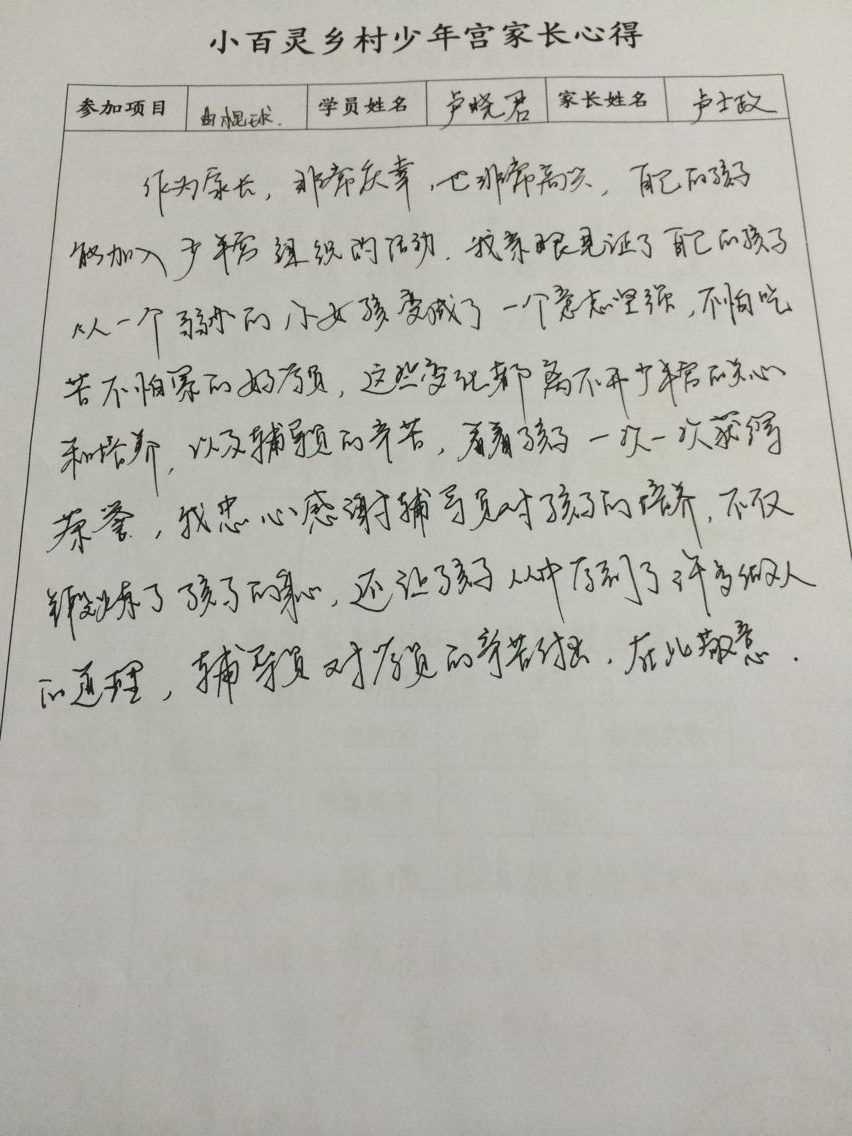 小百灵乡村少年宫家长心得
参加项目 曲棍球. 学员姓名 卢晓君 家长姓名 卢士政
作为家长，非常庆幸，也非常高兴，自己的孩子
能加入少年宫组织的活动．我亲眼见证了自己的孩子
从一个弱小的小女孩变成了一个意志坚强，不怕吃
苦不怕累的好学员，这些变化都离不开少年宫的关心
和培养，以及辅导员的辛苦，看着孩子一次一次获得
荣誉，我忠心感谢辅导员对孩子的培养，不仅
锻炼了孩子的身心，还让孩子从中学到了许多做人
的道理，辅导员对学员的辛苦付出，在此敬意．